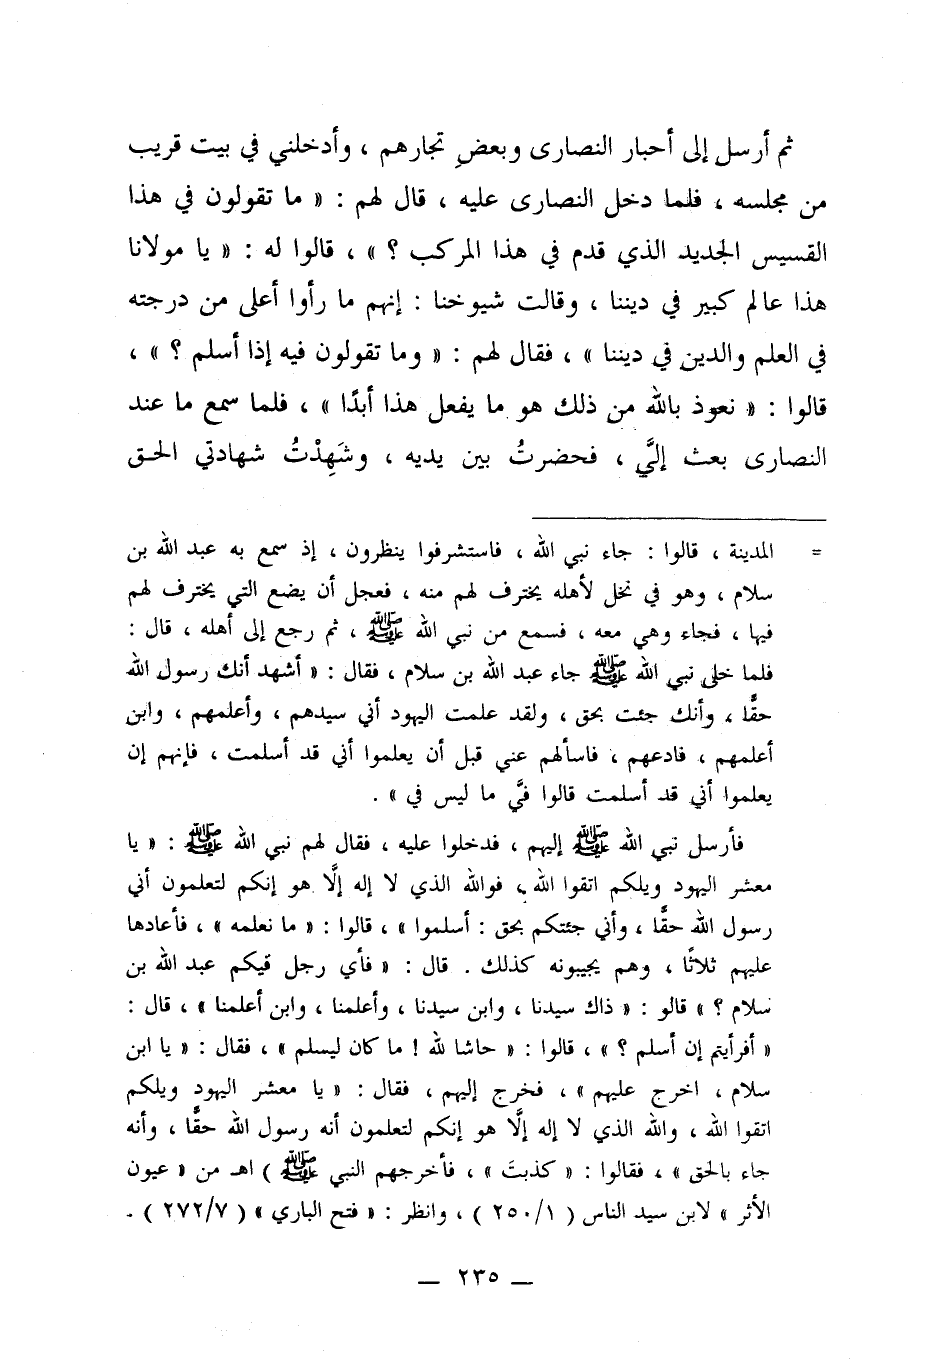 ثم أرسل إلى أحبار النصارى وبعضِ تجارهم ، وأدخلني في بيت قريب
من مجلسه ، فلما دخل النصارى عليه ، قال لهم : « ما تقولون في هذا
القسيس الجديد الذي قدم في هذا المركب ؟ » ، قالوا له : « يا مولانا
هذا عالم كبير في ديننا ، وقالت شيوخنا : إنهم ما رأوا أعلى من درجته
في العلم والدين في ديننا » ، فقال لهم : « وما تقولون فيه إذا أسلم ؟ » ،
قالوا : « نعوذ بالله من ذلك هو ما يفعل هذا أبدًا » ، فلما سمع ما عند
النصارى بعث إليَّ ، فحضرتُ بين يديه ، وشَهِدْتُ شهادتي الحق
= المدينة ، قالوا : جاء نبي الله ، فاستشرفوا ينظرون ، إذ سمع به عبد الله بن
سلام ، وهو في نخل لأهله يخترف لهم منه ، فعجل أن يضع التي يخترف لهم
فيها ، فجاء وهي معه ، فسمع من نبي الله ﷺ ، ثم رجع إلى أهله ، قال :
فلما خلى نبي الله ﷺ جاء عبد الله بن سلام ، فقال : « أشهد أنك رسول الله
حقًّا ، وأنك جئت بحق ، ولقد علمت اليهود أني سيدهم ، وأعلمهم ، وابن
أعلمهم ، فادعهم ، فاسألهم عني قبل أن يعلموا أني قد أسلمت ، فإنهم إن
يعلموا أني قد أسلمت قالوا فيَّ ما ليس في » .
فأرسل نبي الله ﷺ إليهم ، فدخلوا عليه ، فقال لهم نبي الله ﷺ : « يا
معشر اليهود ويلكم اتقوا الله ، فوالله الذي لا إله إلَّا هو إنكم لتعلمون أني
رسول الله حقًّا ، وأني جئتكم بحق : أسلموا » ، قالوا : « ما نعلمه » ، فأعادها
عليهم ثلاثًا ، وهم يجيبونه كذلك . قال : « فأي رجل فيكم عبد الله بن
سلام ؟ » قالو : « ذاك سيدنا ، وابن سيدنا ، وأعلمنا ، وابن أعلمنا » ، قال :
« أفرأيتم إن أسلم ؟ » ، قالوا : « حاشا لله ! ما كان ليسلم » ، فقال : « يا ابن
سلام ، اخرج عليهم » ، فخرج إليهم ، فقال : « يا معشر اليهود ويلكم
اتقوا الله ، والله الذي لا إله إلَّا هو إنكم لتعلمون أنه رسول الله حقًّا ، وأنه
جاء بالحق » ، فقالوا : « كذبتَ » ، فأخرجهم النبي ﷺ ) اهـ من « عيون
الأثر » لابن سيد الناس ( ١/٢٥٠ ) ، وانظر : « فتح الباري » ( ٧/٢٧٢ ) .
— ٢٣٥ —